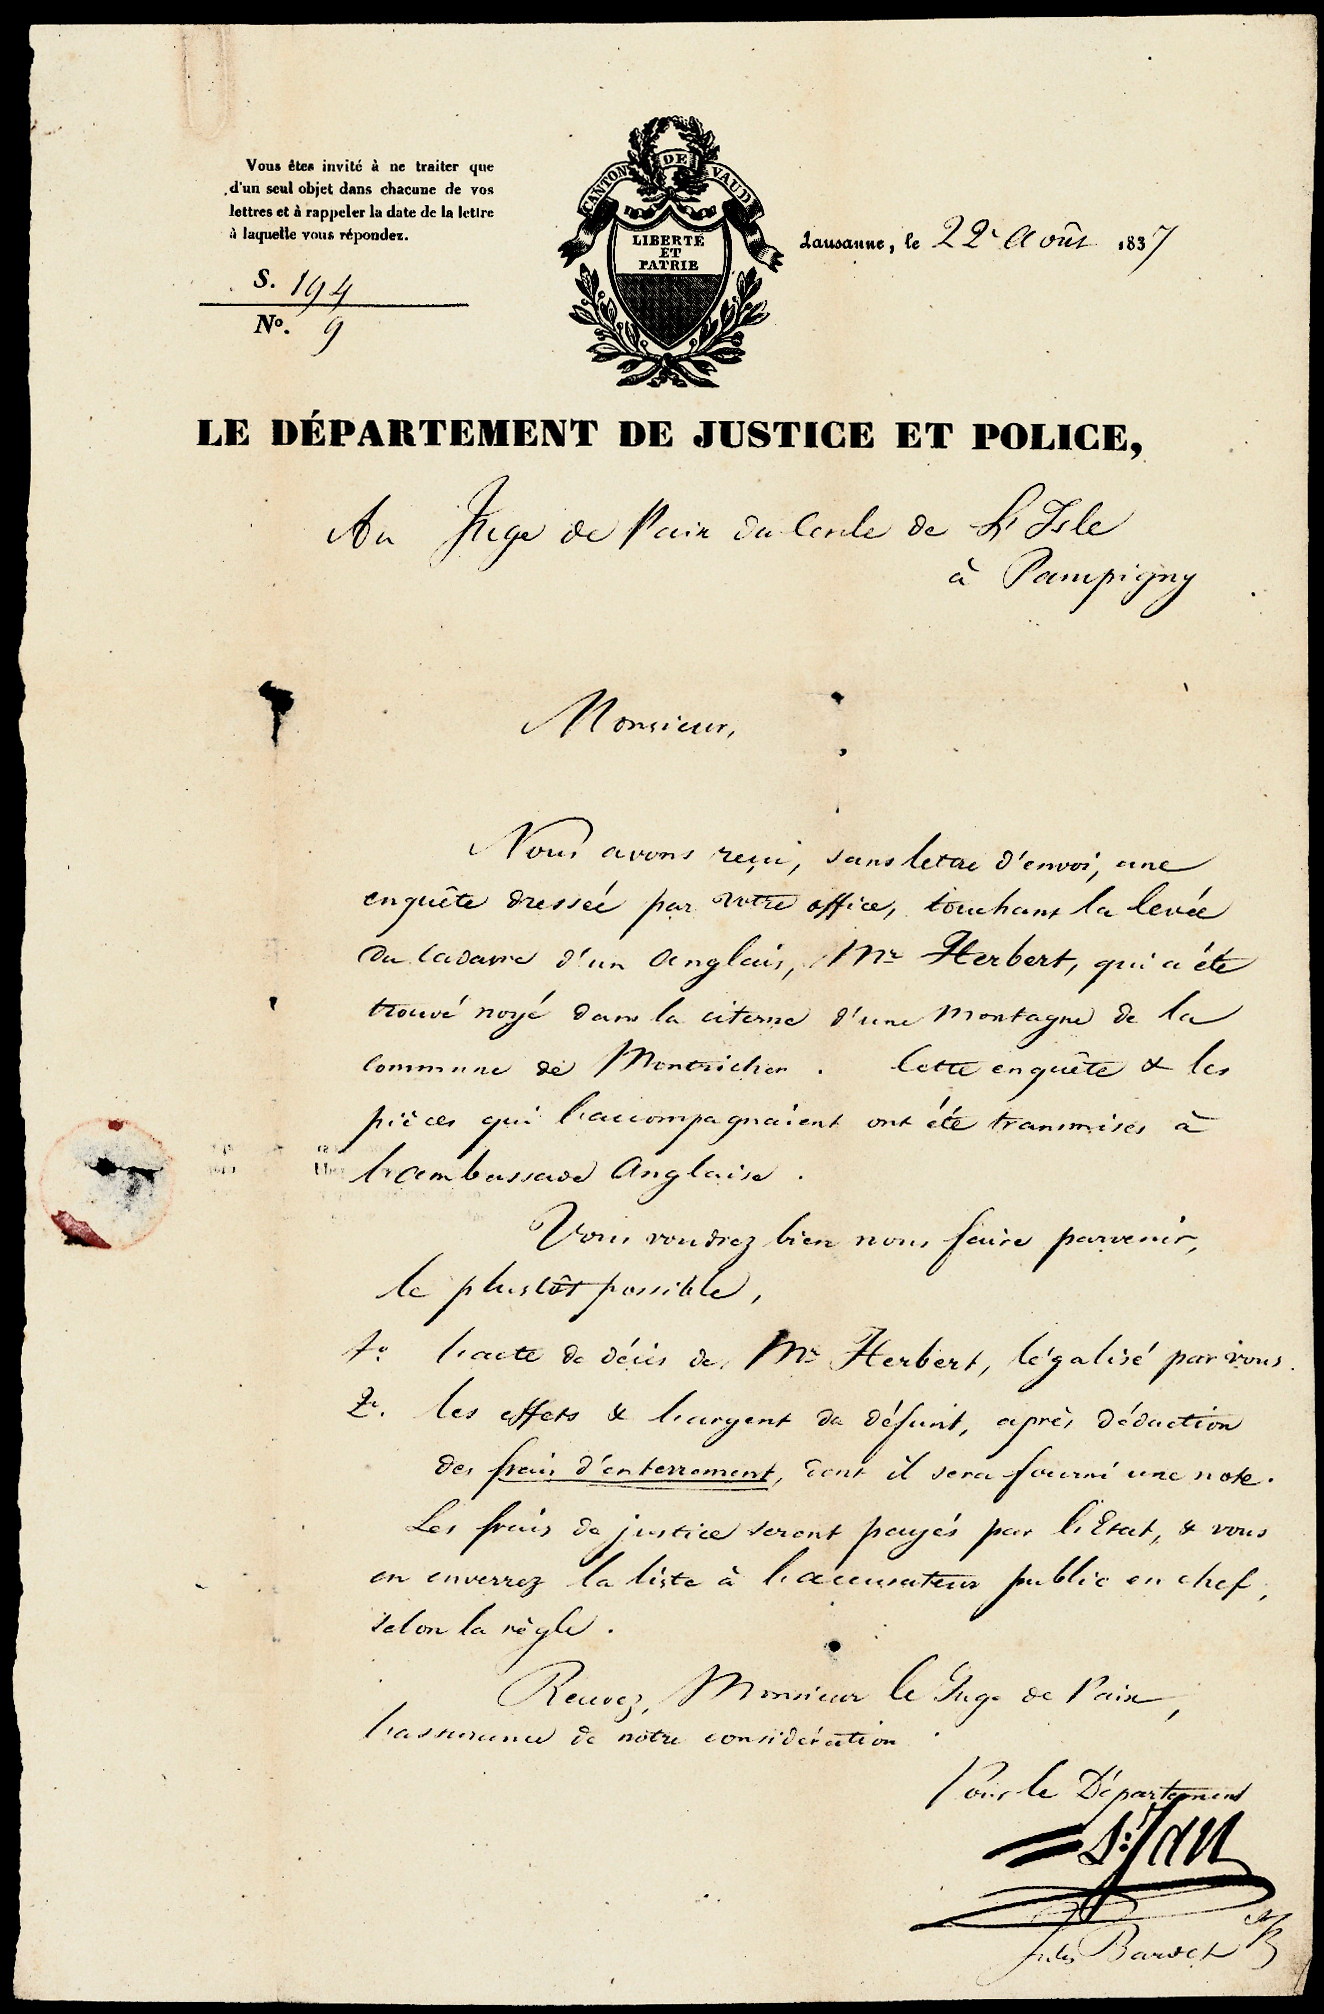 Vous êtes invité à ne traiter que
d'un seul objet dans chacune de vos
lettres et à rappeler la date de la lettre
à laquelle vous répondez.
S. 194
No. 9
CANTON DE VAUD
LIBERTÉ
ET
PATRIE
Lausanne, le 22e Août 1837
LE DÉPARTEMENT DE JUSTICE ET POLICE,
Au Juge de Paix du Cercle de L'Isle
à Pampigny
Monsieur,
Nous avons reçu, sans lettre d'envoi, une
enquête dressée par votre office, touchant la levée
du cadavre d'un Anglais, Mr Herbert, qui a été
trouvé noyé dans la citerne d'une montagne de la
commune de Montricher. Cette enquête & les
pièces qui l'accompagnaient ont été transmises à
l'ambassade Anglaise.
Vous voudrez bien nous faire parvenir,
le plustôt possible,
1o. l'acte de décès de Mr Herbert, légalisé par vous.
2o. les effets & l'argent du défunt, après déduction
des frais d'enterrement, dont il sera fourni une note.
Les frais de justice seront payés par l'Etat, & vous
en enverrez la liste à l'accusateur public en chef,
selon la règle.
Recevez, Monsieur le Juge de Paix,
l'assurance de notre considération
Pour le Département
Jules